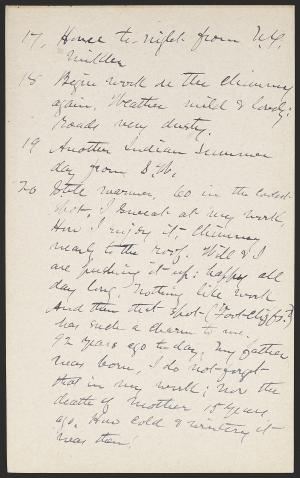 17, Home to-night from N.Y.
18 Begin work on the Chimney
again. Weather mild & lovely;
roads very dusty.
19 Another Indian Summer
day from S.W.
20 Still warmer, 60 in the coolest
spot. I sweat at my work,
How I enjoy it; Chimney
nearly to the roof. Will & I
are pushing it up: happy all
day long: nothing like work
And then that spot
has such a charm to me.
92 years ago to-day, my father
was born, I do not forget
that in my work; nor the
death of mother 15 years
ago. How cold & wintery it
was then!